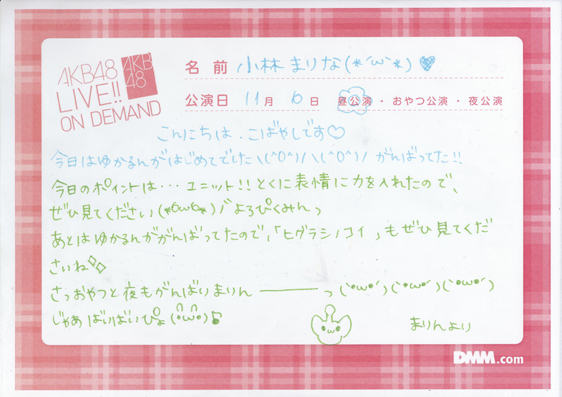 AKB48
LIVE!!
ON DEMAND
AKB
48
名前 小林まりな(*´ω`*)♡
公演日 11月 6日 昼公演・おやつ公演・夜公演
こんにちは、こばやしです♡
今日はゆかるんがはじめてでした\(^o^)/\(^o^)/ がんばってた!!
今日のポイントは…ユニット!!とくに表情に力を入れたので、
ぜひ見てください(*6ω6*)ﾞよろぴくみんっ
あとはゆかるんががんばってたので、「ヒグラシノコイ」もぜひ見てくだ
さいね
さっおやつと夜もがんばりまりん――っ(`・ω・´)(`・ω・´)(`・ω・´)
じゃあばいばいぴょ(・ω・)♪
まりんより
DMM.com